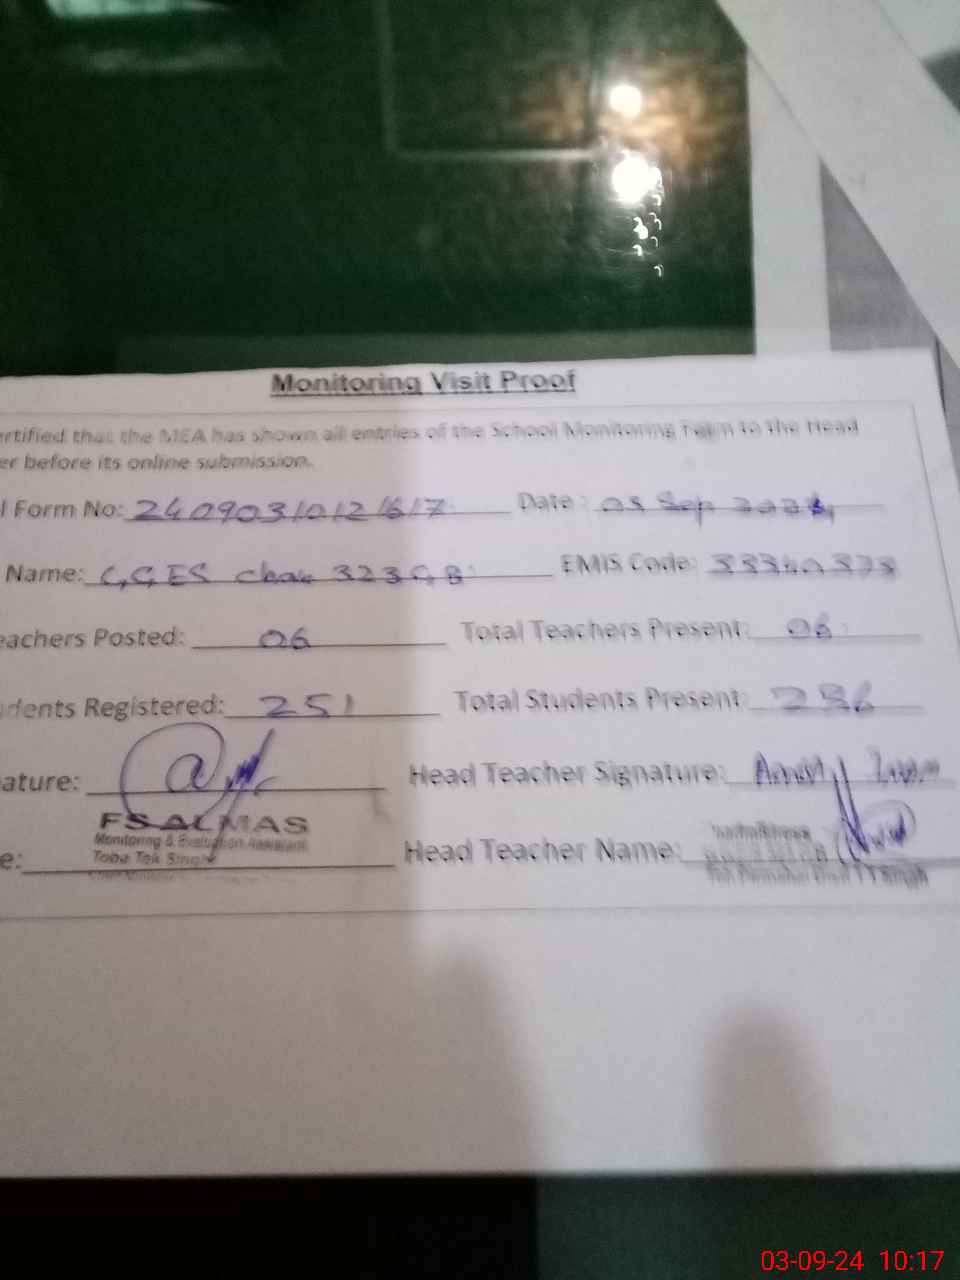 Monitoring Visit Proof
ertified that the MEA has shown all entries of the School Monitoring Form to the Head
er before its online submission.
l Form No: 2409031012167 Date: 03 Sep 2024
Name: GGES chak 323GB EMIS Code:
eachers Posted: 06 Total Teachers Present: 06
dents Registered: 251 Total Students Present: 236
ature: Head Teacher Signature:
FS ALMAS
Monitoring & Evaluation Assistant
Toba Tek Singh
e: Head Teacher Name:
03-09-24 10:17